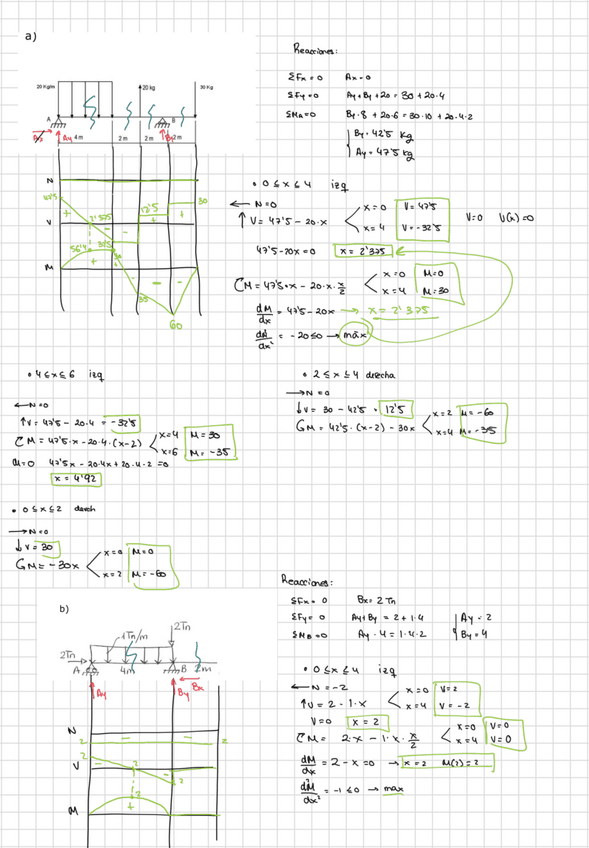 a)
Reacciones:
20 Kg/m
20 kg
30 Kg
ΣFx=0 Ax=0
ΣFy=0 Ay+By+20=30+20·4
ΣMA=0 By·8+20·6=30·10+20·4·2
By=42'5 kg
Ay=47'5 kg
A
B
Ax
Ay
4 m
2 m
2 m
By
2 m
N
47'5
V
+
2'375
12'5
+
30
56'4
32'5
M
+
30
-
-
35
60
• 0≤x≤4 izq
← N=0
↑ V=47'5-20·x
x=0 V=47'5
x=4 V=-32'5
V=0 V(x)=0
47'5-20x=0 x=2'375
M=47'5·x-20·x·x/2
x=0 M=0
x=4 M=30
dM/dx=47'5-20x → x=2'375
dM/dx²=-20≤0 → máx
• 4≤x≤6 izq
← N=0
↑V=47'5-20·4=-32'5
M=47'5·x-20·4·(x-2)
x=4 M=30
x=6 M=-35
M=0 47'5x-20·4x+20·4·2=0
x=4'92
• 2≤x≤4 derecha
→ N=0
↓V=30-42'5=12'5
M=42'5·(x-2)-30x
x=2 M=-60
x=4 M=-35
• 0≤x≤2 derch
→ N=0
↓V=30
M=-30x
x=0 M=0
x=2 M=-60
b)
Reacciones:
ΣFx=0 Bx=2Tn
ΣFy=0 Ay+By=2+1·4
ΣMB=0 Ay·4=1·4·2
Ay=2
By=4
2Tn
1Tn/m
2Tn
A
4m
B
2m
Ay
By
Bx
N
2
-
-
2
V
2
2
2
M
+
• 0≤x≤4 izq
← N=-2
↑V=2-1·x
x=0 V=2
x=4 V=-2
V=0 x=2
M= 2·x-1·x·x/2
x=0 V=0
x=4 V=0
dM/dx=2-x=0 → x=2 M(2)=2
dM/dx²=-1≤0 → max